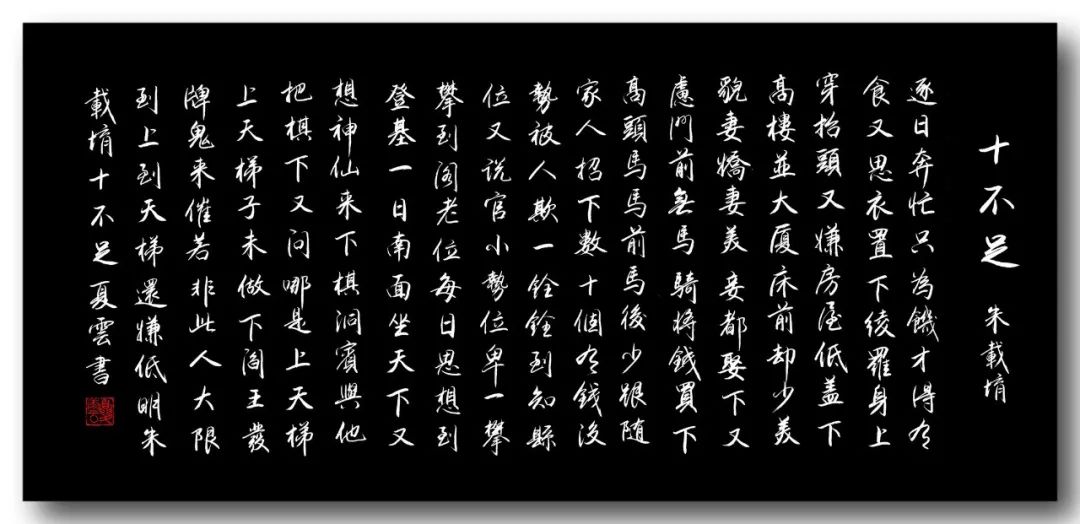 十不足 朱載堉
逐日奔忙只為饑才得有
食又思衣置下綾羅身上
穿抬頭又嫌房屋低盖下
高樓並大厦床前却少美
貌妻嬌妻美妾都娶下又
慮門前無馬騎將錢買下
高頭馬馬前馬後少跟随
家人招下數十個有錢没
勢被人欺一銓銓到知縣
位又说官小勢位卑一攀
攀到阁老位每日思想到
登基一日南面坐天下又
想神仙来下棋洞賓與他
把棋下又问哪是上天梯
上天梯子未做下阎王發
牌鬼来催若非此人大限
到上到天梯還嫌低明朱
載堉十不足夏雲書